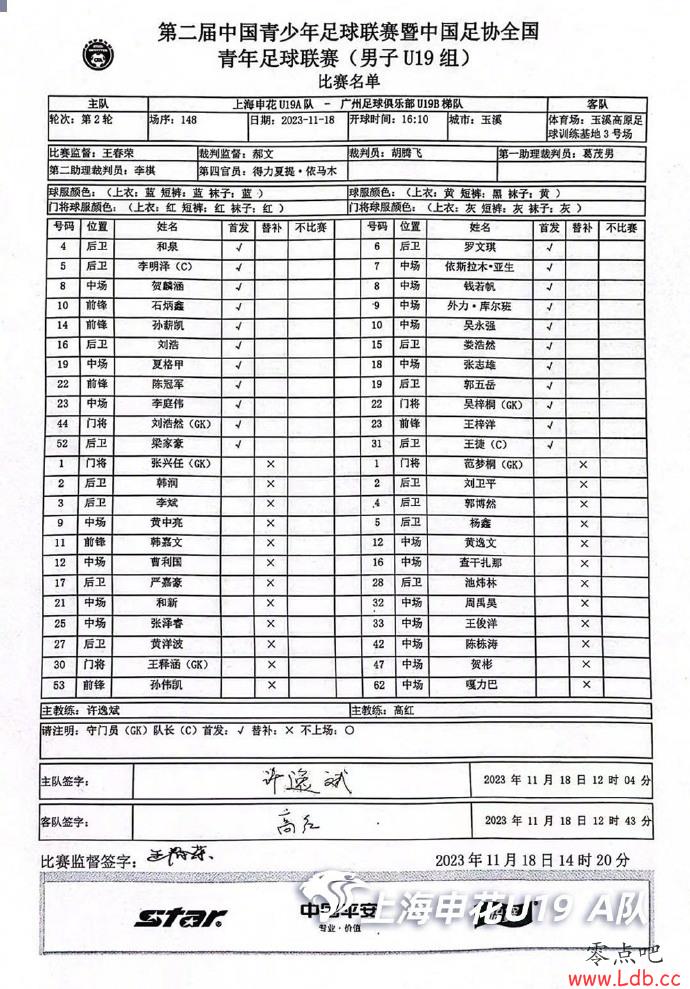 第二届中国青少年足球联赛暨中国足协全国
青年足球联赛（男子 U19 组）
比赛名单
主队 上海申花 U19A 队 - 广州足球俱乐部 U19B 梯队 客队
轮次：第 2 轮 场序：148 日期：2023-11-18 开球时间：16:10 城市：玉溪 体育场：玉溪高原足球训练基地 3 号场
比赛监督：王春荣 裁判监督：郝文 裁判员：胡腾飞 第一助理裁判员：葛茂男
第二助理裁判员：李棋 第四官员：得力夏提·依马木
球服颜色：（上衣：蓝 短裤：蓝 袜子：蓝） 球服颜色：（上衣：黄 短裤：黑 袜子：黄）
门将球服颜色：（上衣：红 短裤：红 袜子：红） 门将球服颜色：（上衣：灰 短裤：灰 袜子：灰）
号码 位置 姓名 首发 替补 不比赛 号码 位置 姓名 首发 替补 不比赛
4 后卫 和泉 √ 6 后卫 罗文琪 √
5 后卫 李明泽（C） √ 7 中场 依斯拉木·亚生 √
8 中场 贺麟涵 √ 8 中场 钱若帆 √
10 前锋 石炳鑫 √ 9 中场 外力·库尔班 √
14 前锋 孙薪凯 √ 10 中场 吴永强 √
16 后卫 刘浩 √ 15 后卫 娄浩然 √
19 中场 夏格甲 √ 18 中场 张志雄 √
22 前锋 陈冠军 √ 19 后卫 郭五岳 √
23 中场 李庭伟 √ 22 门将 吴梓桐（GK） √
44 门将 刘浩然（GK） √ 23 前锋 王梓洋 √
52 后卫 梁家豪 √ 31 后卫 王捷（C） √
1 门将 张兴任（GK） × 1 门将 范梦桐（GK） ×
2 后卫 韩润 × 2 后卫 刘卫平 ×
3 后卫 李斌 × 4 后卫 郭博然 ×
9 中场 黄中亮 × 5 后卫 杨鑫 ×
11 前锋 韩嘉文 × 12 中场 黄逸文 ×
12 中场 曹利国 × 16 中场 查干扎那 ×
17 后卫 严嘉豪 × 28 后卫 池炜林 ×
21 中场 和新 × 32 中场 周禹昊 ×
25 中场 张泽睿 × 33 中场 王俊洋 ×
27 后卫 黄洋波 × 42 中场 陈栋涛 ×
30 门将 王释涵（GK） × 47 中场 贺彬 ×
53 前锋 孙伟凯 × 62 中场 嘎力巴 ×
主教练：许逸斌 主教练：高红
请注明：守门员（GK）队长（C）首发：√ 替补：× 不上场：○
主队签字： 许逸斌 2023 年 11 月 18 日 12 时 04 分
客队签字： 高红 2023 年 11 月 18 日 12 时 43 分
比赛监督签字：王春荣 2023 年 11 月 18 日 14 时 20 分
star. 中国平安
专业·价值
上海申花U19 A队
零点吧
www.Ldb.cc